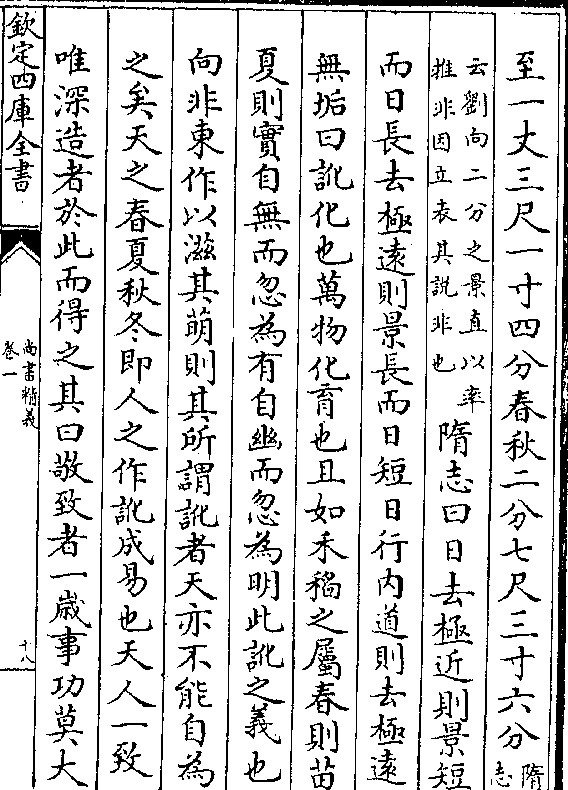 至一丈三尺一寸四分春秋二分七尺三寸六分隋志
云劉向二分之景直以率
推非因立表其說非也
隋志曰日去極近則景短
而日長去極遠則景長而日短日行內道則去極遠
無垢曰訛化也萬物化育也且如禾稻之屬春則苗
夏則實自無而忽為有自幽而忽為明此訛之義也
向非東作以滋其萌則其所謂訛者天亦不能自為
之矣天之春夏秋冬即人之作訛成易也天人一致
唯深造者於此而得之其曰敬致者一歲事功莫大
欽定四庫全書
尚書精義
卷一
十八